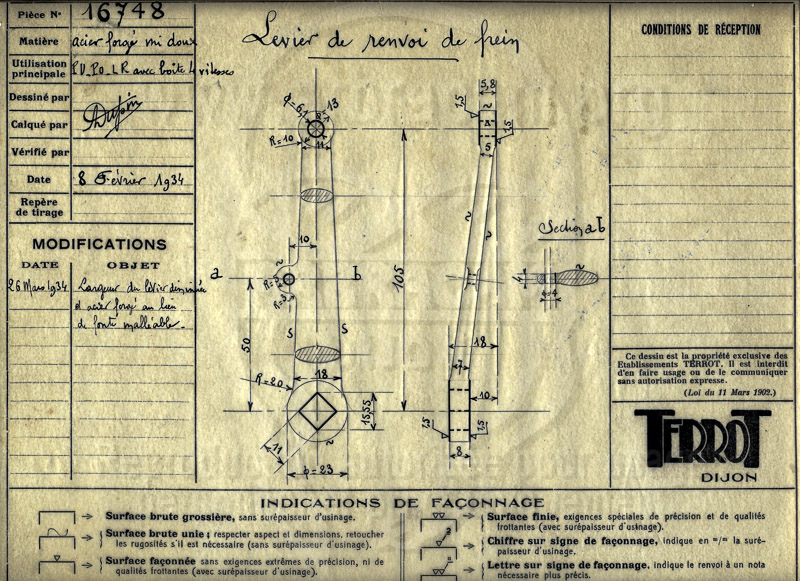 Pièce N° 16748
Matière acier forgé mi doux
Utilisation principale PU_PO_LR avec boîte 4 vitesses
Dessiné par
Calqué par
Vérifié par
Date 8 Février 1934
Repère de tirage
MODIFICATIONS
DATE OBJET
26 Mars 1934 Largeur du levier diminuée
et acier forgé au lieu
de fonte malléable.
Levier de renvoi de frein
φ=6,1
13
R=10
11
10
a
b
R=3
50
105
S
S
18
R=20
15,55
11
φ=23
5,8
1,5
A
1,5
5
18
7
10
1,5
1,5
8
Section ab
4
4
CONDITIONS DE RÉCEPTION
Ce dessin est la propriété exclusive des
Etablissements TERROT. Il est interdit
d'en faire usage ou de le communiquer
sans autorisation expresse.
(Loi du 11 Mars 1902.)
TERROT
DIJON
INDICATIONS DE FAÇONNAGE
Surface brute grossière, sans surépaisseur d'usinage.
Surface brute unie ; respecter aspect et dimensions, retoucher
les rugosités s'il est nécessaire (sans surépaisseur d'usinage).
Surface façonnée sans exigences extrêmes de précision, ni de
qualités frottantes (avec surépaisseur d'usinage).
Surface finie, exigences spéciales de précision et de qualités
frottantes (avec surépaisseur d'usinage).
Chiffre sur signe de façonnage, indique en ᵐ/ᵐ la surépaisseur d'usinage.
Lettre sur signe de façonnage, indique le renvoi à un nota
nécessaire plus précis.